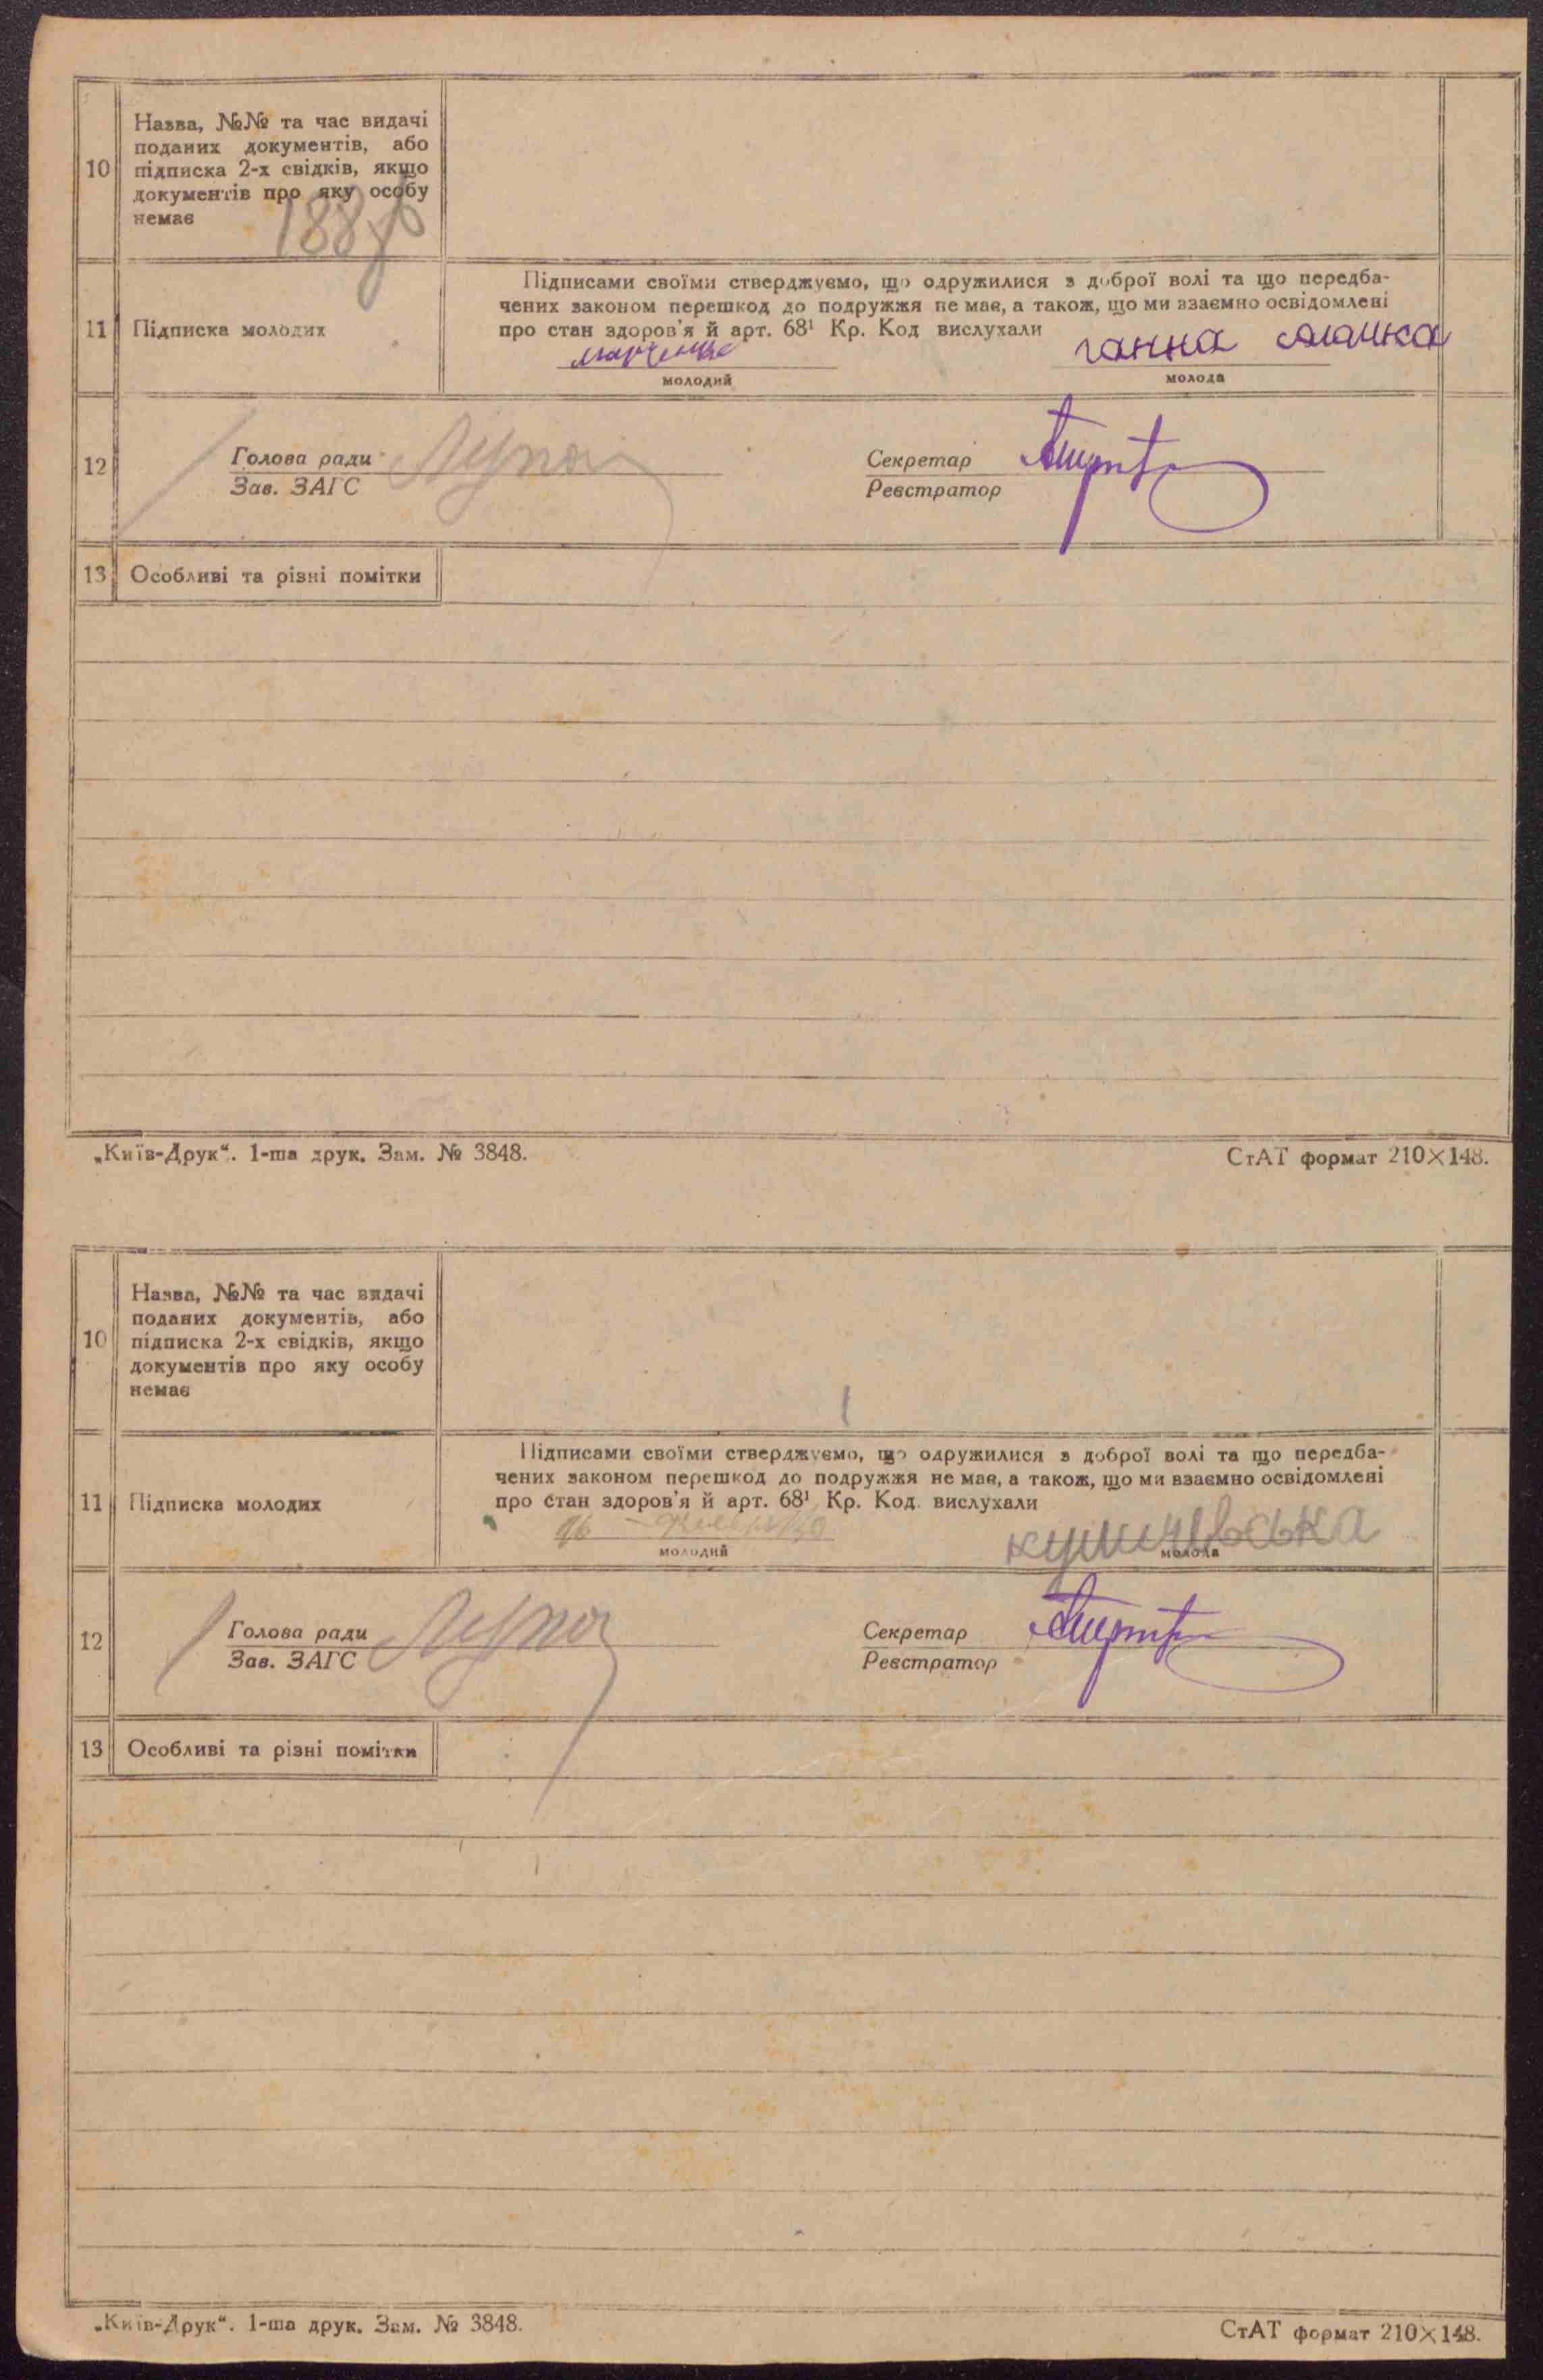 10
Назва, №№ та час видачі
поданих документів, або
підписка 2-х свідків, якщо
документів про яку особу
немає
11
Підписка молодих
Підписами своїми стверджуємо, що одружилися з доброї волі та що передба-
чених законом перешкод до подружжя не має, а також, що ми взаємно освідомлені
про стан здоров'я й арт. 68¹ Кр. Код вислухали
ганна
молодий
молода
12
Голова ради
Зав. ЗАГС
Секретар
Реєстратор
13
Особливі та різні помітки
„Київ-Друк“. 1-ша друк. Зам. № 3848.
СтАТ формат 210×148.
10
Назва, №№ та час видачі
поданих документів, або
підписка 2-х свідків, якщо
документів про яку особу
немає
11
Підписка молодих
Підписами своїми стверджуємо, що одружилися з доброї волі та що передба-
чених законом перешкод до подружжя не має, а також, що ми взаємно освідомлені
про стан здоров'я й арт. 68¹ Кр. Код. вислухали
молодий
молода
12
Голова ради
Зав. ЗАГС
Секретар
Реєстратор
13
Особливі та різні помітки
„Київ-Друк“. 1-ша друк. Зам. № 3848.
СтАТ формат 210×148.